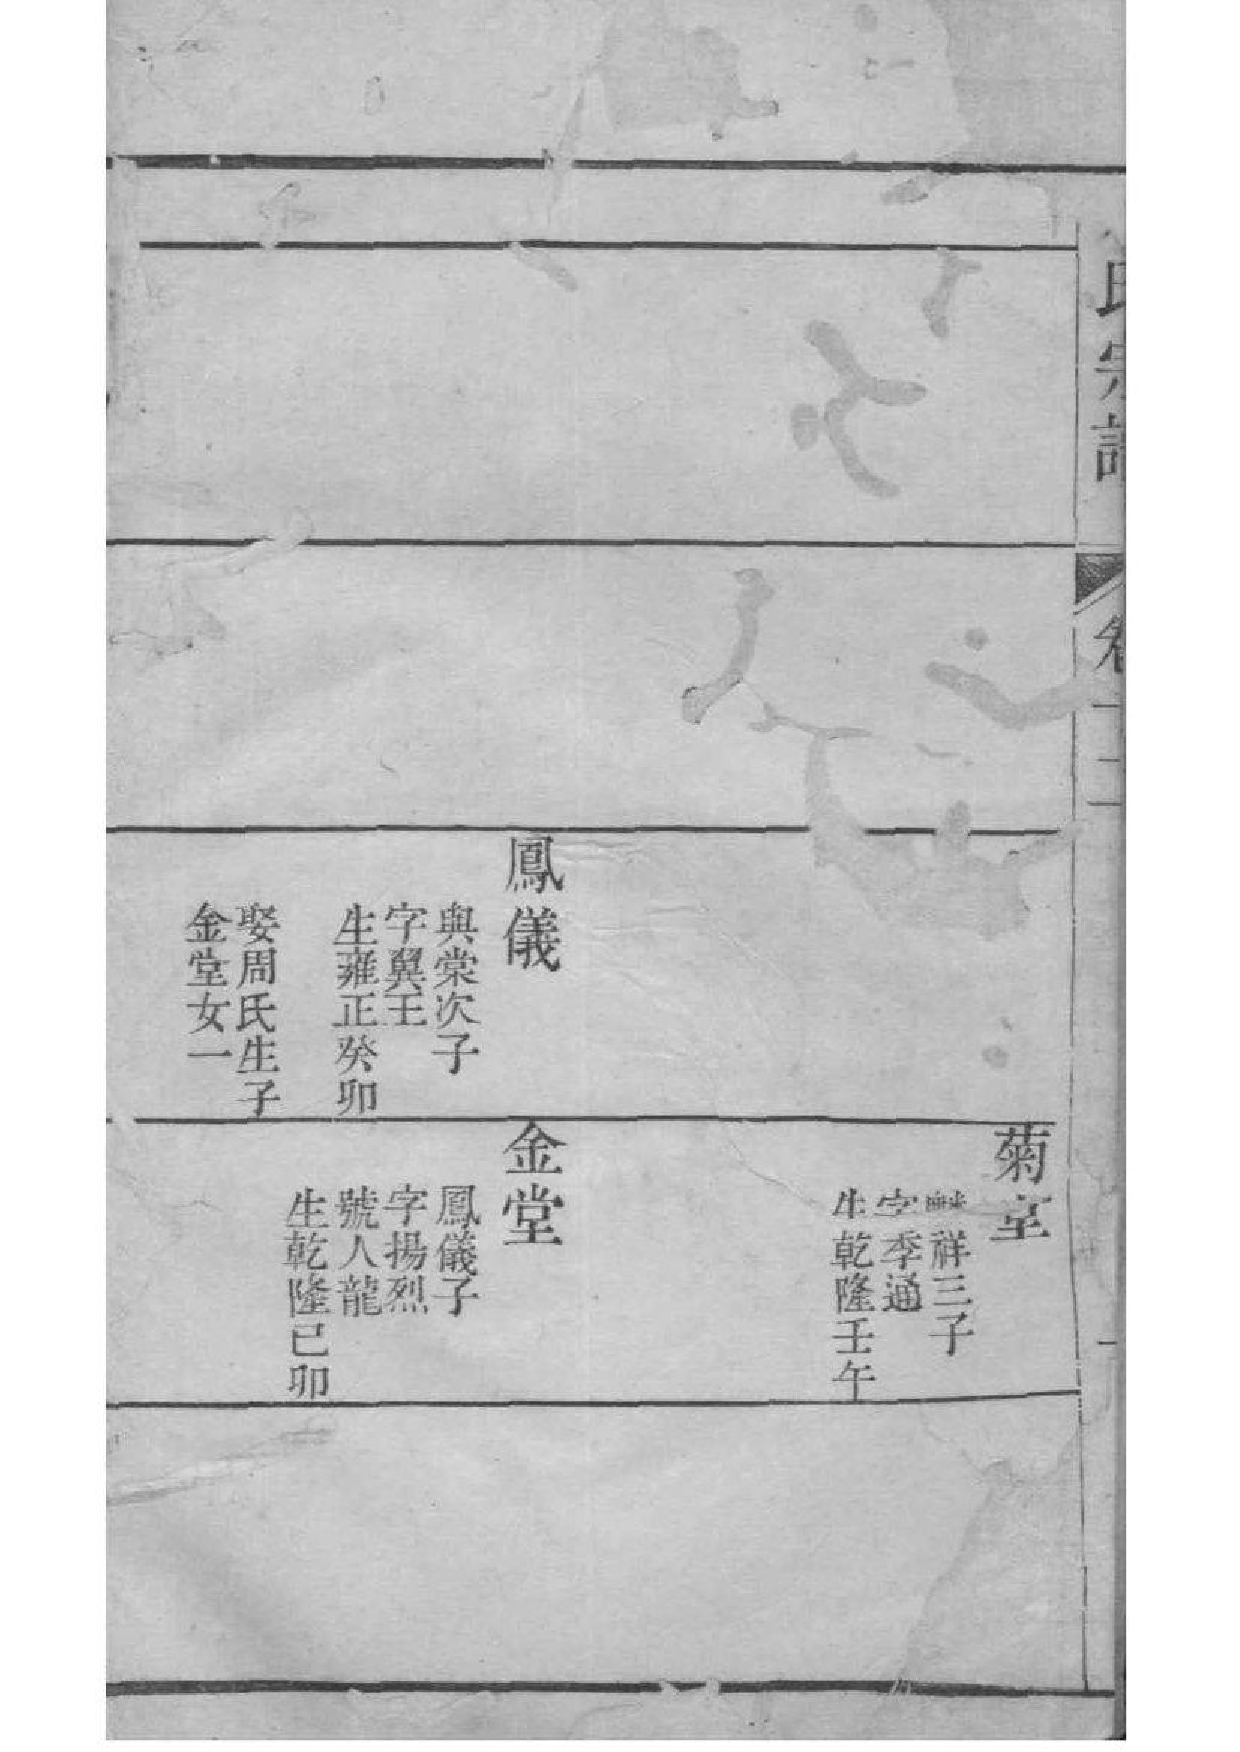 氏宗譜
卷十二
菊亭
祥三子
字季通
生乾隆壬午
鳳儀
與棠次子
字翼王
生雍正癸卯
娶周氏生子
金堂女一
金堂
鳳儀子
字揚烈
號人龍
生乾隆己卯